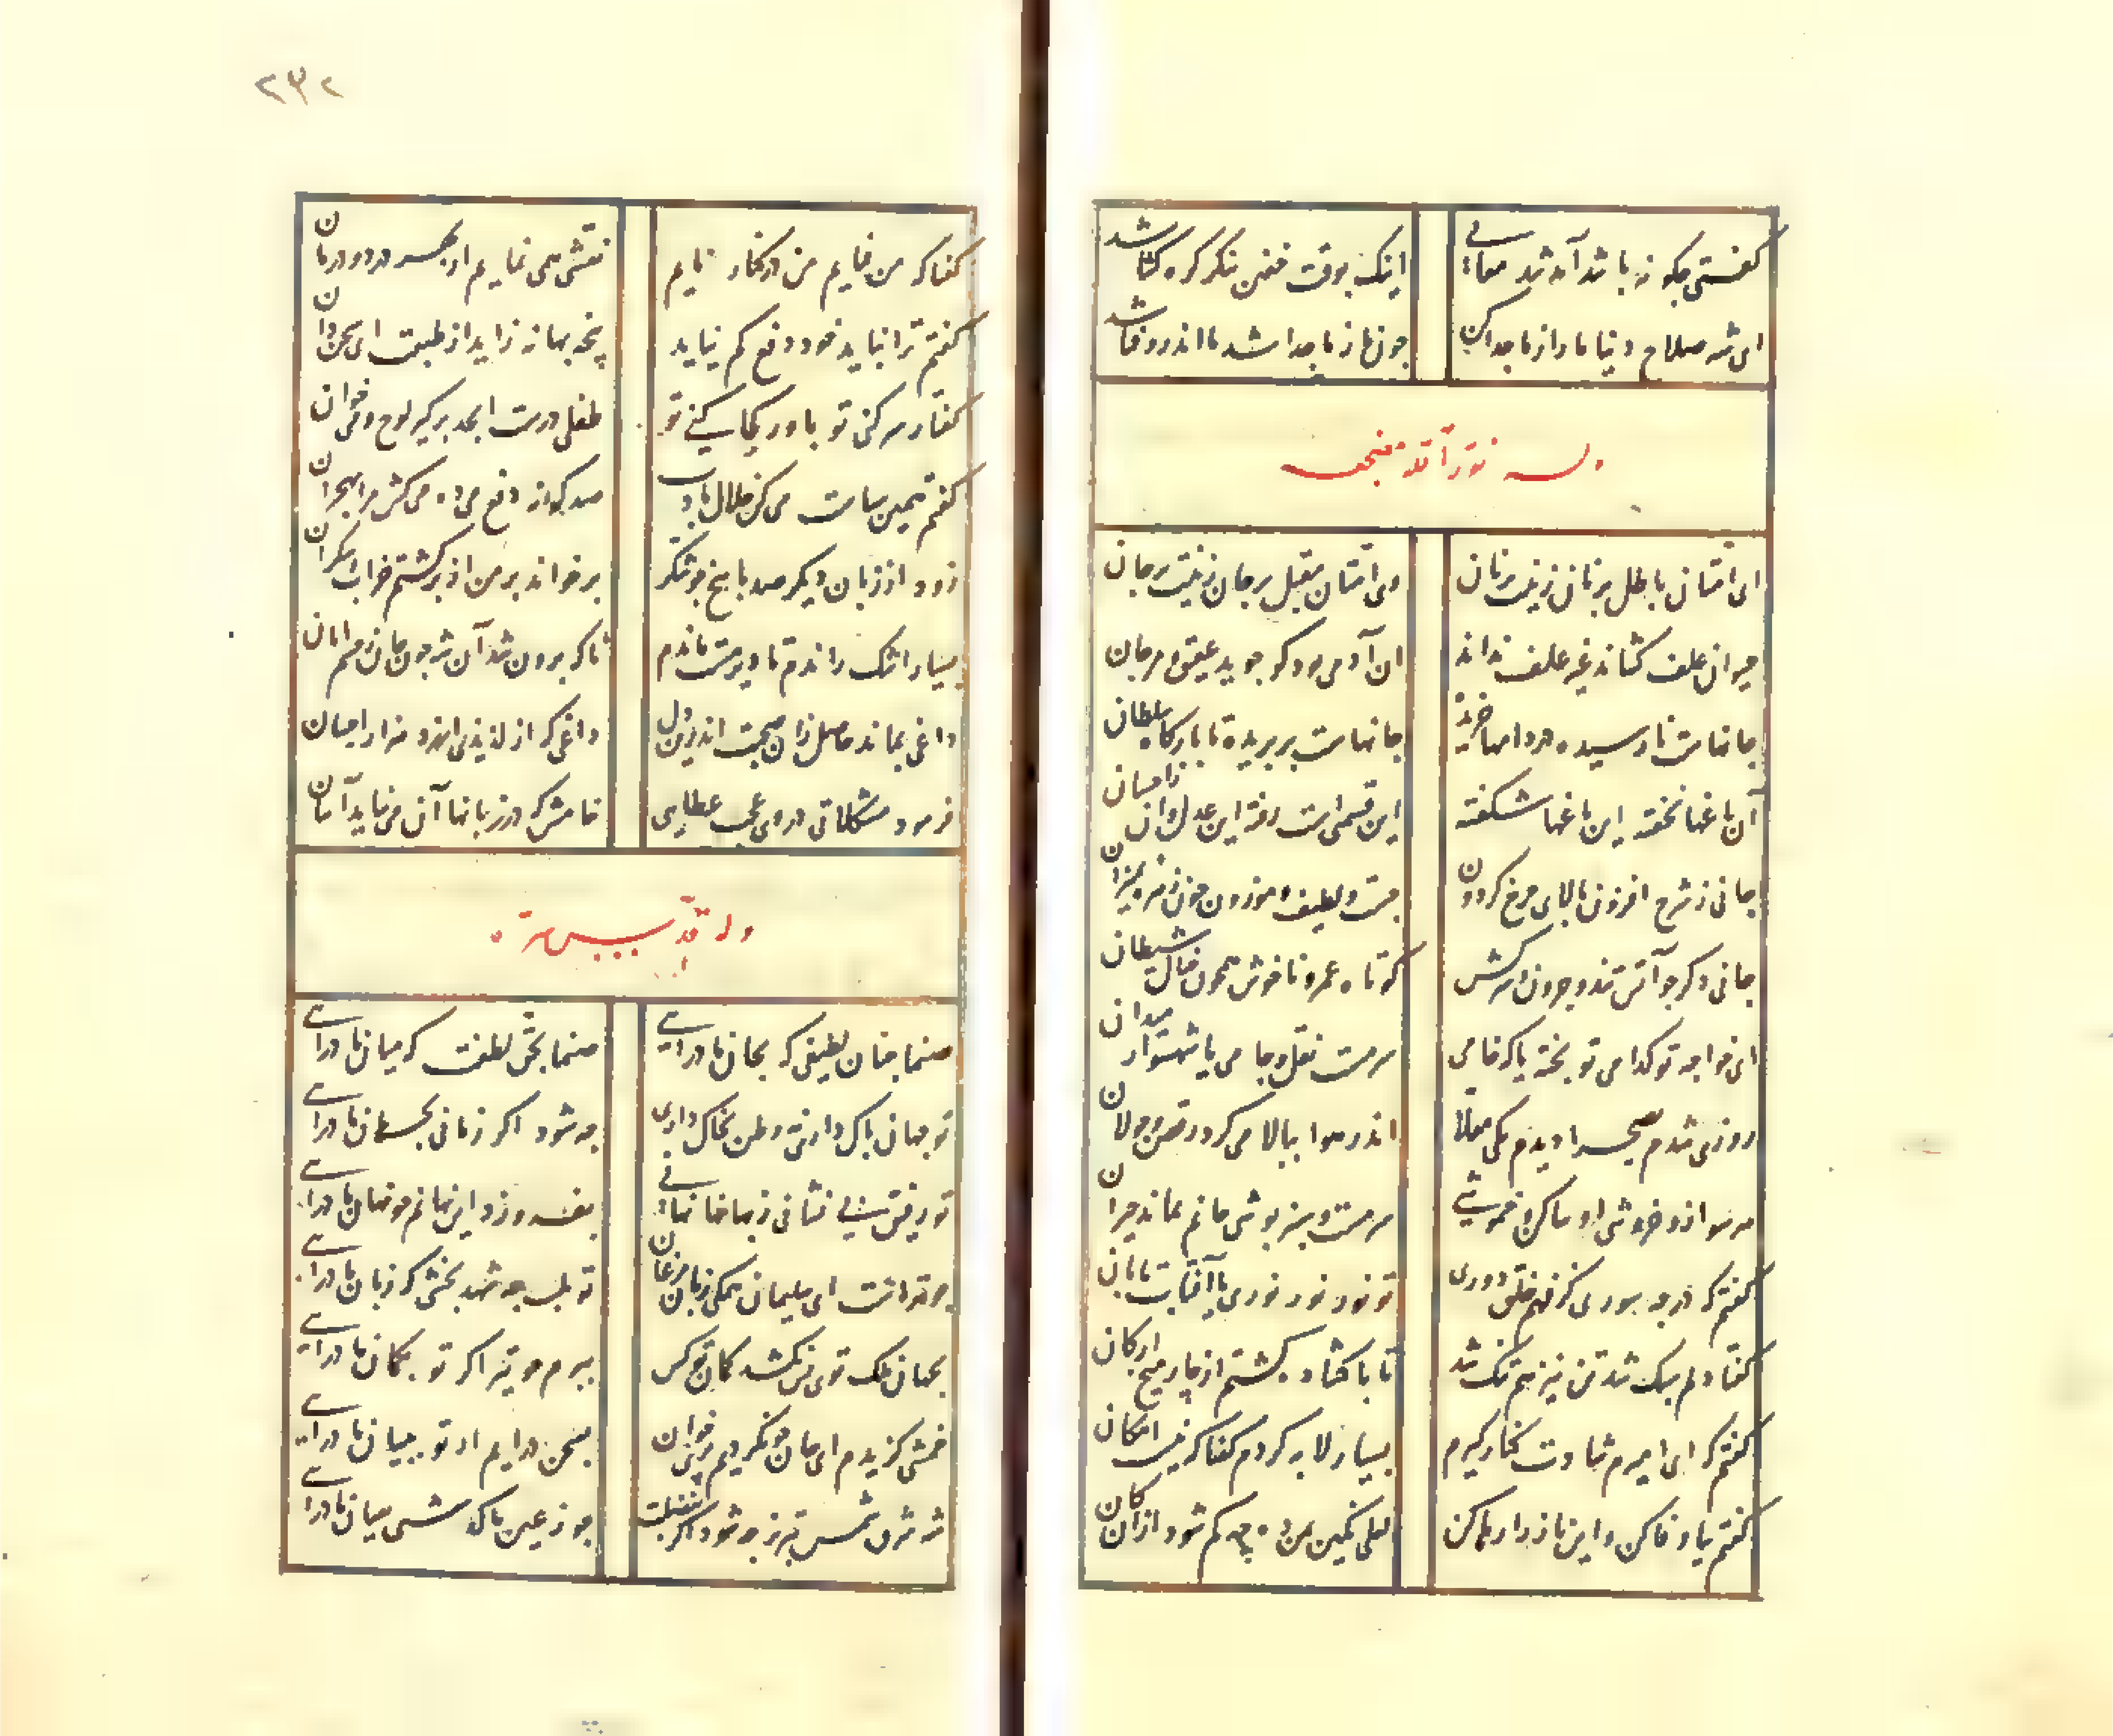 کفتی چکونه باشد آمد شد معانی
اینک بوقت خفتن بنکر کره کشا شد
ای شه صلاح دنیا ما را ز ما جدا کن
چون ما ز ما جدا شد ما اندر و فنا شد
وله نور الله مضجعه
ای امتان باطل بر نان زنید بر نان
وی امتان مقبل بر جان زنید بر جان
حیوان علف کشاند غیر علف نداند
آن آدمی بود کو جوید عقیق و مرجان
جانهاست نارسیده در دامها خزیده
جانهاست بر پریده تا بارکاه سلطان
آن باغها نخفته این باغها شکفته
این قسمی است رفته این عدل دان
جانی ز شرح افزون بالای چرخ کردون
چست و لطیف و موزون چون
جانی دکر چو آتش تند و حرون و سرکش
کوتاه عمر و ناخوش همچون خیال شیطان
ای خواجه تو کدامی تو پخته یا که خامی
سرمست نقل و جامی یا شهسوار میدان
روزی شدم بصحرا دیدم یکی معلا
اندر هوا ببالا می کرد رقص و جولان
هر سو ازو خروشی او ساکن و خموشی
سرمست و سبز پوشی جانم بماند حیران
کفتم که در چه سوری کز فهم خلق دوری
تو نور نور نوری یا آفتاب تابان
کفتا دلم سبک شد تن نیز هم تنک شد
تا پا کشاده کشتم از چار میخ ارکان
کفتم که ای امیرم شادت کنار کیرم
بسیار لابه کردم کفتا که نیست امکان
کفتم بیا وفا کن وین ناز را رها کن
لعلی نکین بمن ده چه کم شود از آن کان
۲۳۲
کفتا که من فنایم من در کنار نایم
نقشی همی نمایم از بهر درد و درمان
کفتم ترا نیاید خود دفع کم نیاید
پنجه بهانه زاید از طبعت ای سخن دان
کفتا ز سر کنی تو باور کجا کنی تو
طفلی درست ابجد برکیر لوح و می خوان
کفتم همین سیاست می کن حلال بادت
صد کونه دفع می ده می کش مرا بهجران
زود از زبان دیکر صد پاسخ چو شکر
بر خواند بر من از بر کشتم خراب سکران
بسیار اشک راندم تا دیر مست ماندم
تا که برون شد آن شه چون جان ز جسم
داغی بماند حاصل زان صحبت اندرین دل
داغی که از لذیذی ارزد هزار احسان
فرمود مشکلاتی در وی عجب عظاتی
خامش که در زبانها آن می نیاید آسان
وله قدس سره
صنما چنان لطیفی که بجان ما درآیی
صنما بحق لطفت که میان ما درآیی
تو جهان پاک داری نه وطن بخاک داری
چه شود اکر زمانی بجهان ما درآیی
تو لطیف بی نشانی ز نهانها نهانی
بفروزد این نهانم چو نهان ما درآیی
چو تراست ای سلیمان همکی زبان مرغان
تو بلب چه شهد بخشی که زبان ما درآیی
بجهان ملک تویی بس نکشد کمان تو کس
بپرم چو تیر اکر تو بکمان ما درآیی
خمشی کزیدم ای جان چو نکردیم پرنده خوان
بسخن درآیم ار تو ببیان ما درآیی
شه شرق شمس تبریز چه شود اکر بفضلت
چو ز عین پاک هستی بمیان ما درآیی